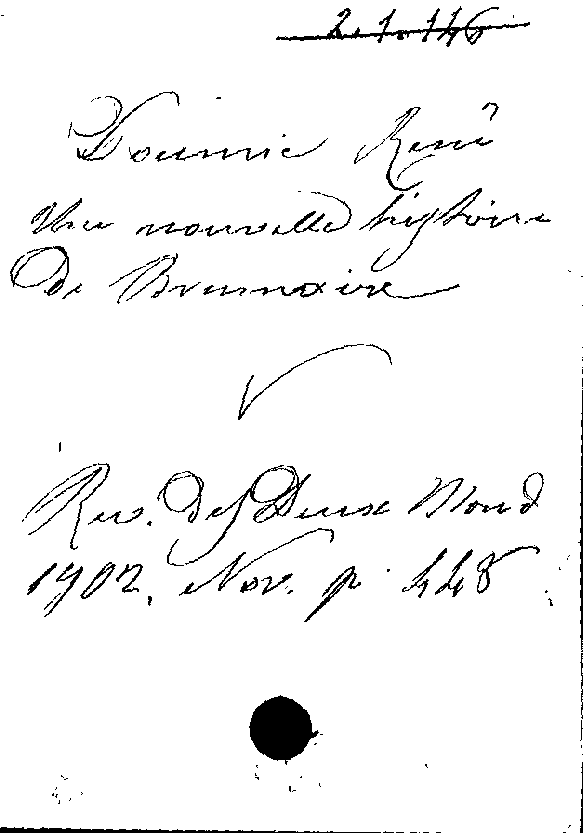 2.1.146
Doumic René
Une nouvelle histoire
de Brumaire
Rev. des Deux Mond
1902. Nov. p. 448